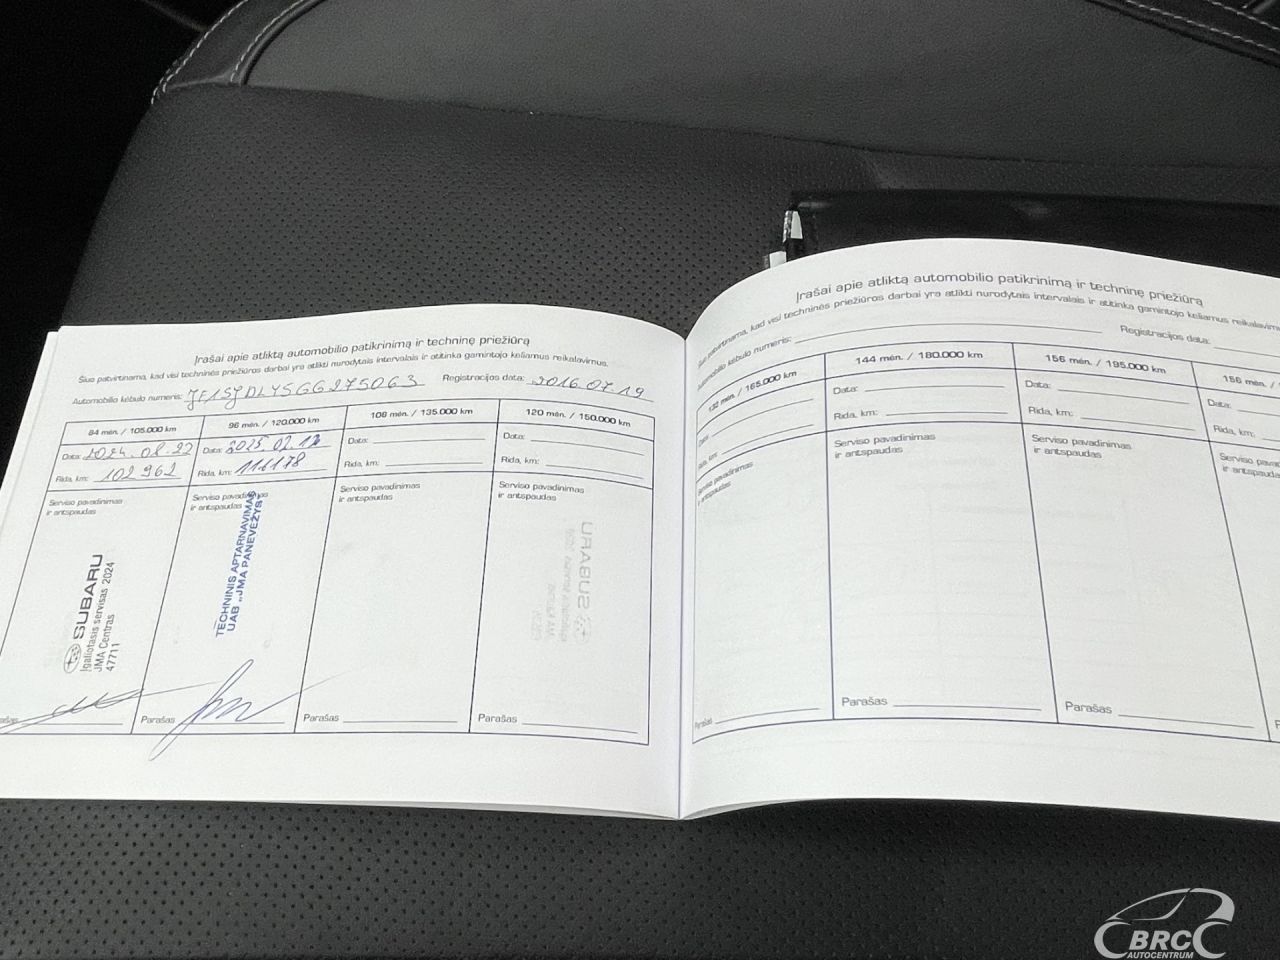 Įrašai apie atliktą automobilio patikrinimą ir techninę priežiūrą
Šiuo patvirtinama, kad visi techninės priežiūros darbai yra atlikti nurodytais intervalais ir atitinka gamintojo keliamus reikalavimus.
Automobilio kėbulo numeris: JF1SJDLYSGG275063 Registracijos data: 2016.07.19
84 mėn. / 105.000 km 96 mėn. / 120.000 km 108 mėn. / 135.000 km 120 mėn. / 150.000 km
Data: 2024.08.22 Data: 2025.02.12 Data: Data:
Rida, km: 102 962 Rida, km: 111178 Rida, km: Rida, km:
Serviso pavadinimas Serviso pavadinimas Serviso pavadinimas Serviso pavadinimas
ir antspaudas ir antspaudas ir antspaudas ir antspaudas
SUBARU
Įgaliotasis servisas 2024
JMA Centras
47711
TECHNINIS APTARNAVIMAS
UAB „JMA PANEVĖŽYS"
Parašas Parašas Parašas
Įrašai apie atliktą automobilio patikrinimą ir techninę priežiūrą
Šiuo patvirtinama, kad visi techninės priežiūros darbai yra atlikti nurodytais intervalais ir atitinka gamintojo keliamus
Automobilio kėbulo numeris: Registracijos data:
132 mėn. / 165.000 km 144 mėn. / 180.000 km 156 mėn. / 195.000 km 156 mėn. /
Data: Data: Data:
Rida, km: Rida, km: Rida, km: Rida, km:
Serviso pavadinimas Serviso pavadinimas Serviso pavadinimas
ir antspaudas ir antspaudas ir antspaudas
Parašas Parašas Parašas
BRC
AUTOCENTRUM